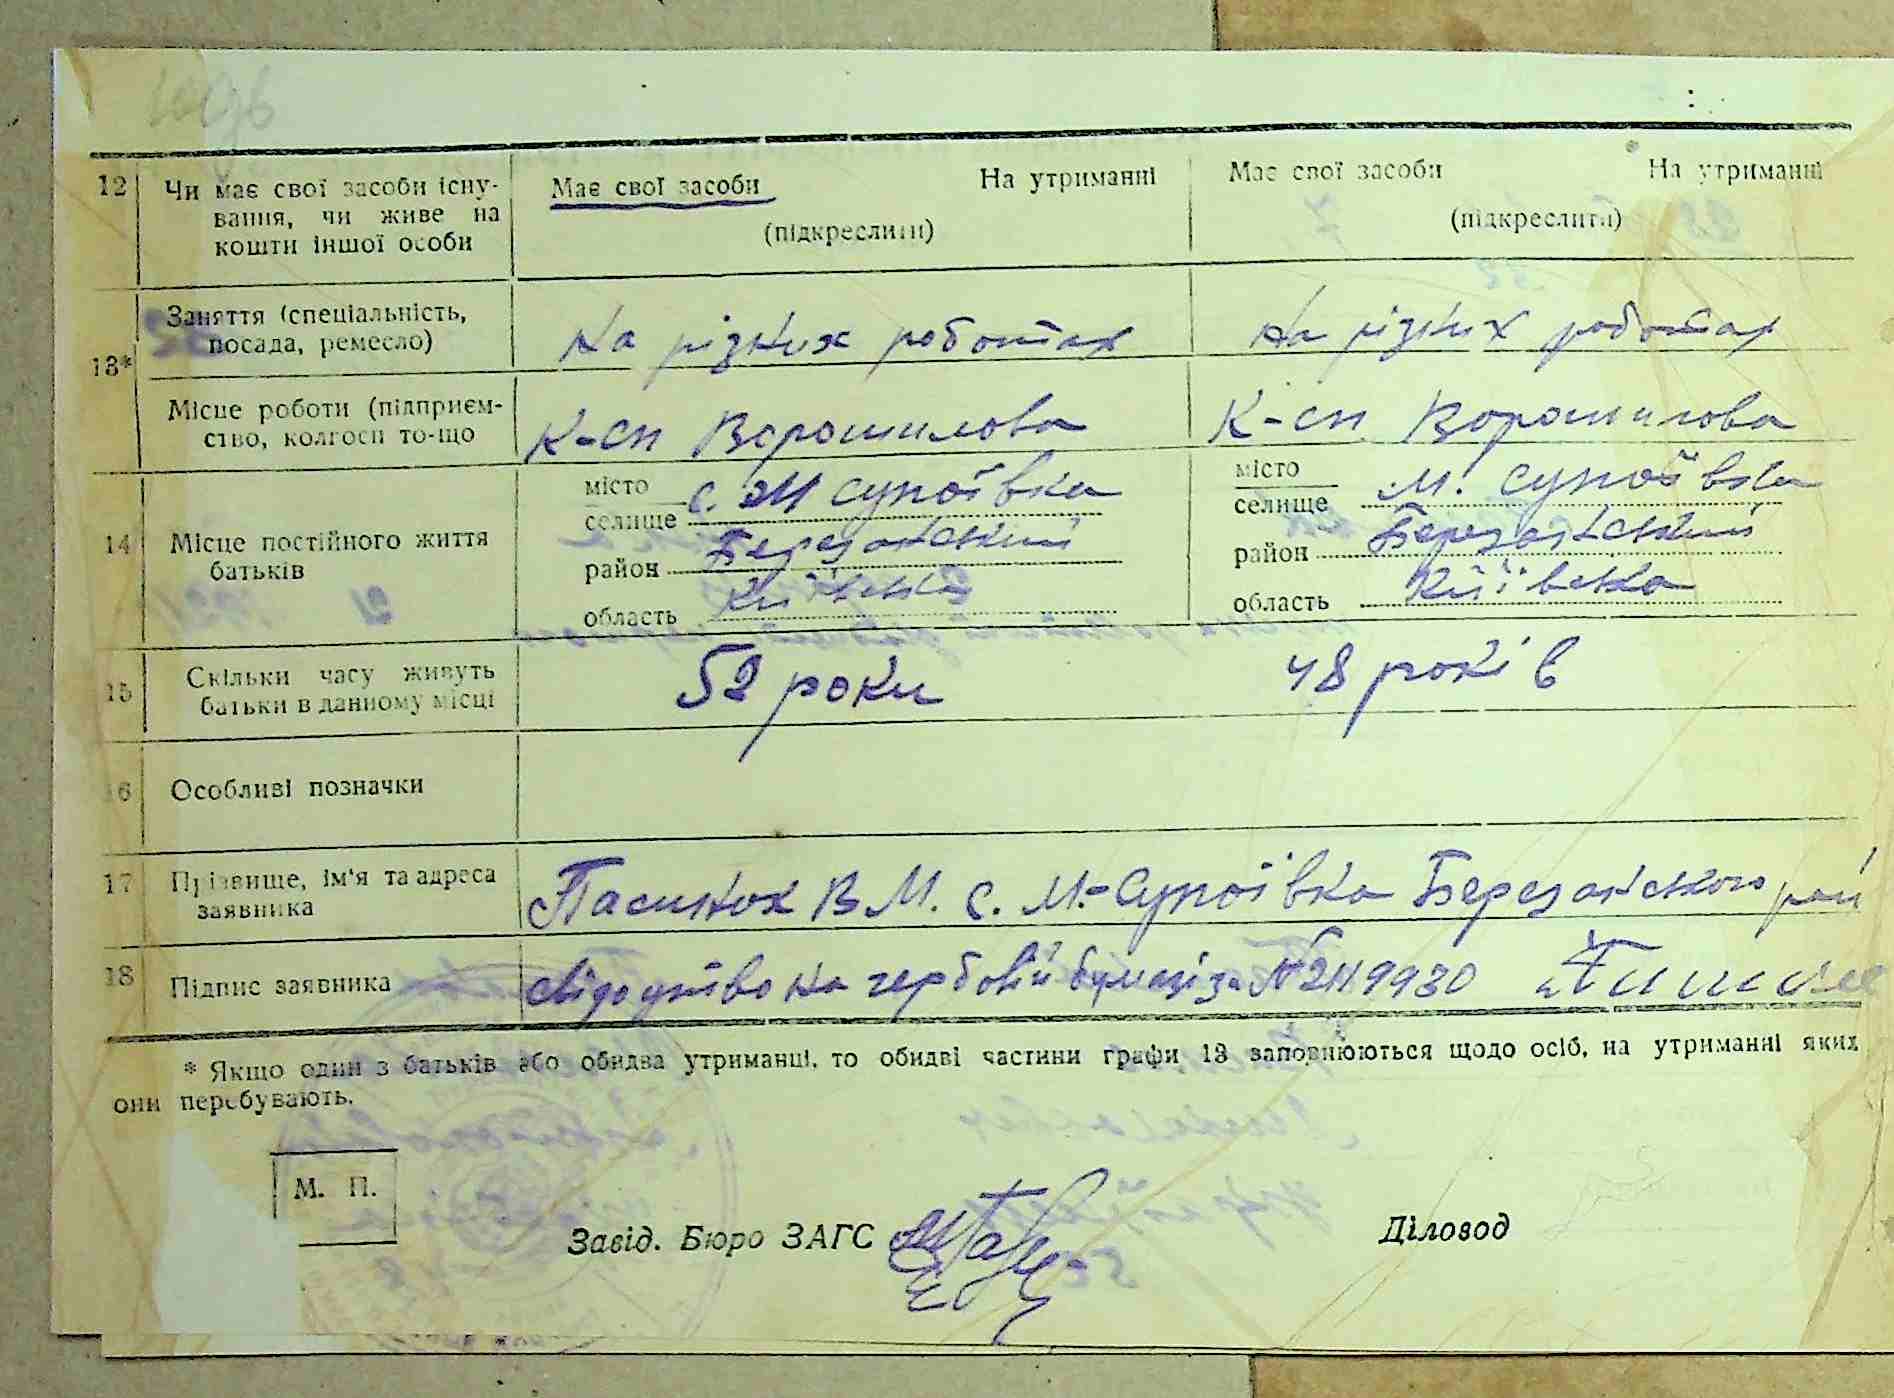 12 Чи має свої засоби існу-
вання, чи живе на
кошти іншої особи
Має свої засоби На утриманні
(підкреслити)
Має свої засоби На утриманні
(підкреслити)
13* Заняття (спеціальність,
посада, ремесло)
На різних роботах
На різних роботах
Місце роботи (підприєм-
ство, колгосп то-що
К-сп Ворошилова
К-сп Ворошилова
14 Місце постійного життя
батьків
місто
селище с. М Супоївка
район Березанський
область Київська
місто
селище М. Супоївка
район Березанський
область Київська
15 Скільки часу живуть
батьки в данному місці
52 роки
48 років
16 Особливі позначки
17 Прізвище, ім'я та адреса
заявника
Пасинок В М. с. М-Супоївка Березанського рай
18 Підпис заявника
Свідоцтво на гербовій бумазі за №
* Якщо один з батьків або обидва утриманці, то обидві частини графи 13 заповнюються щодо осіб, на утриманні яких
они перебувають.
М. П.
Завід. Бюро ЗАГС
Діловод